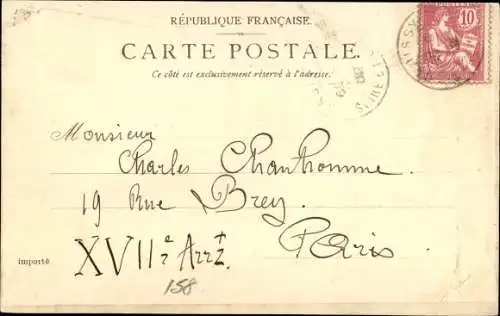 RÉPUBLIQUE FRANÇAISE.
CARTE POSTALE.
Ce côté est exclusivement réservé à l'adresse.
10
Monsieur
Charles Chanthomme
19 Rue Brey
Paris
XVIIe Arrt.
importé.
158